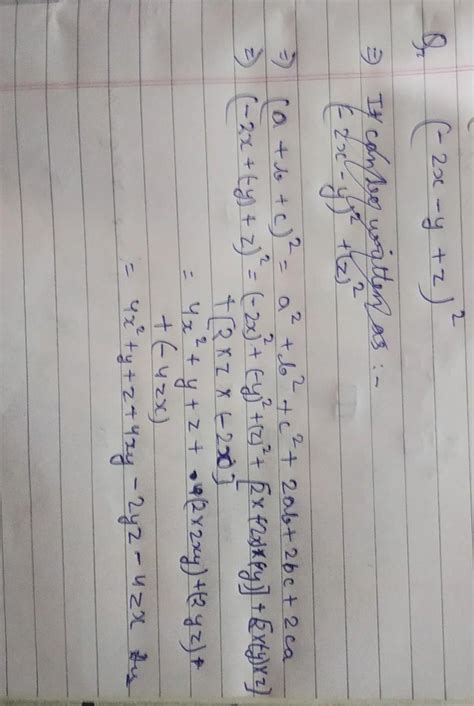 Q2 (-2x - y + z)²
⇒ It can be written as :-
(-2x - y)² + (z)²
⇒ (a + b + c)² = a² + b² + c² + 2ab + 2bc + 2ca
⇒ (-2x + (-y) + z)² = (-2x)² + (-y)² + (z)² + [2x(-2x)x(-y)] + [2x(-y)xz]
+ [2 x z x (-2x)]
= 4x² + y + z + (2x2xy) + (2yz) +
+ (-4zx)
= 4x² + y + z + 4xy - 2yz - 4zx